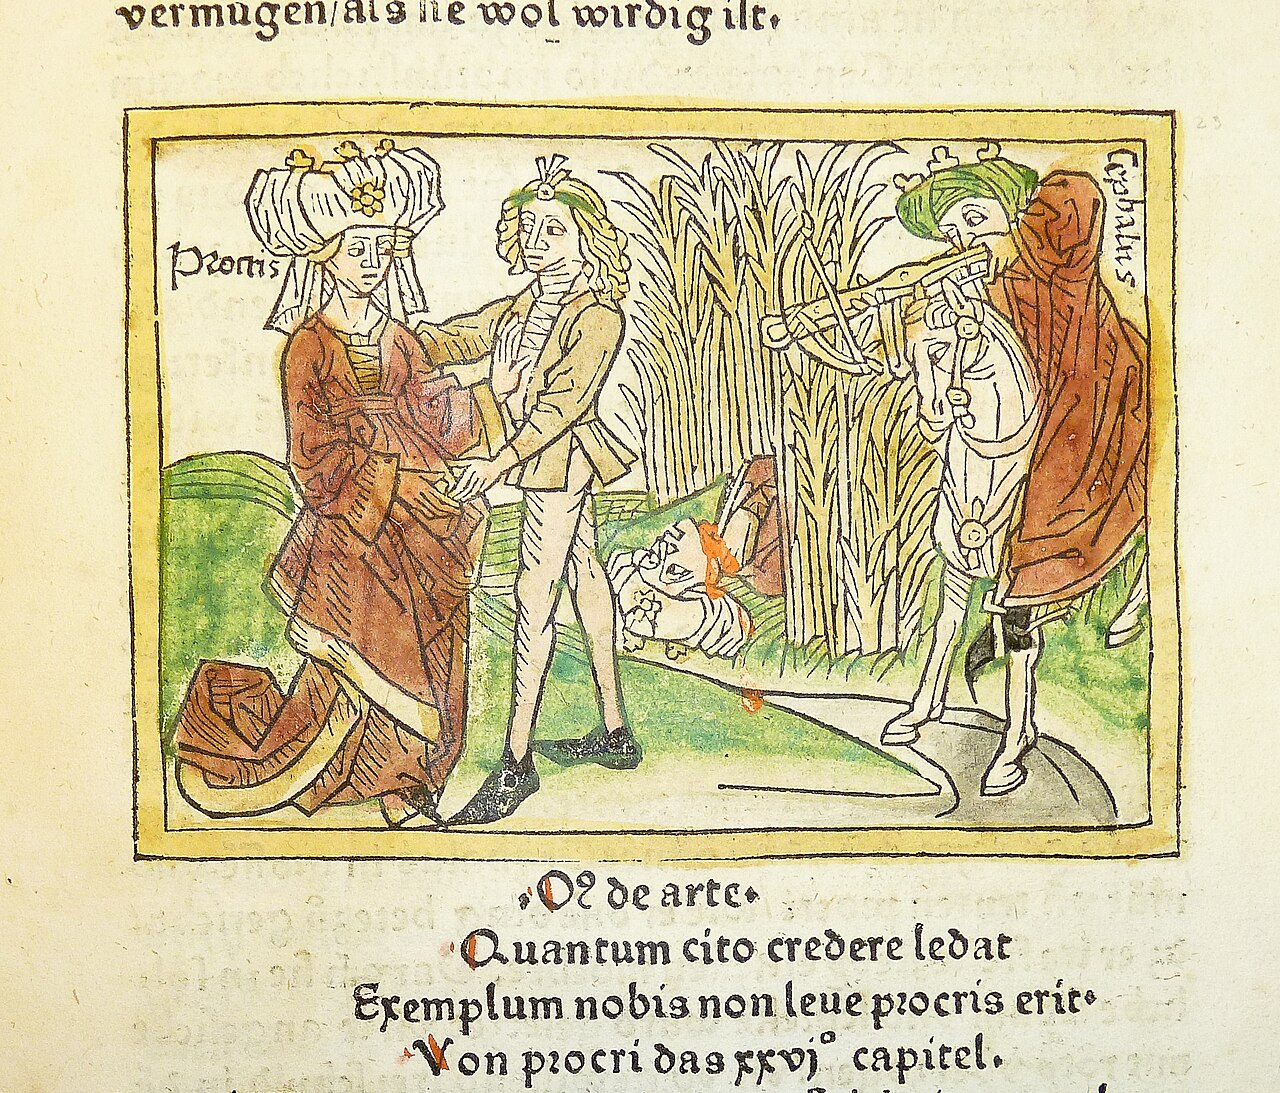 vermugen/als sie wol wirdig ist.
Procris
Cephalus
Oꝰ de arte.
Quantum cito credere ledat
Exemplum nobis non leue procris erit.
Von procri das xxvjᵒ capitel.